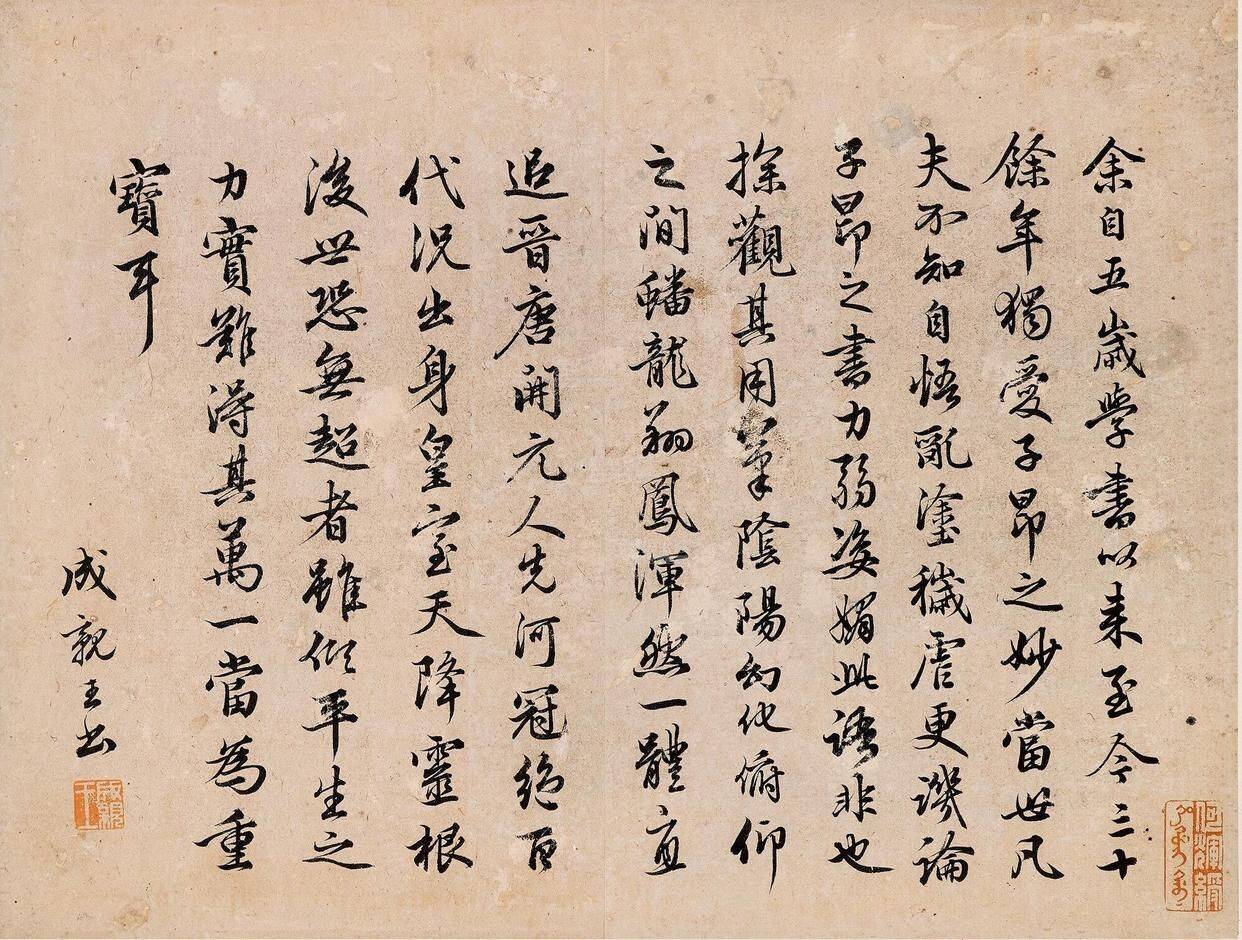 余自五歲學書以來至今三十
餘年獨愛子昂之妙當世凡
夫不知自悟亂塗穢虐更譏論
子昂之書力弱姿媚此語非也
探觀其用筆陰陽幻化俯仰
之間蟠龍翔鳳渾然一體直
追晉唐開元人先河冠絕百
代況出身皇室天降靈根
後世恐無超者雖傾平生之
力實難得其萬一當為重
寶耳
成親王書
成親王